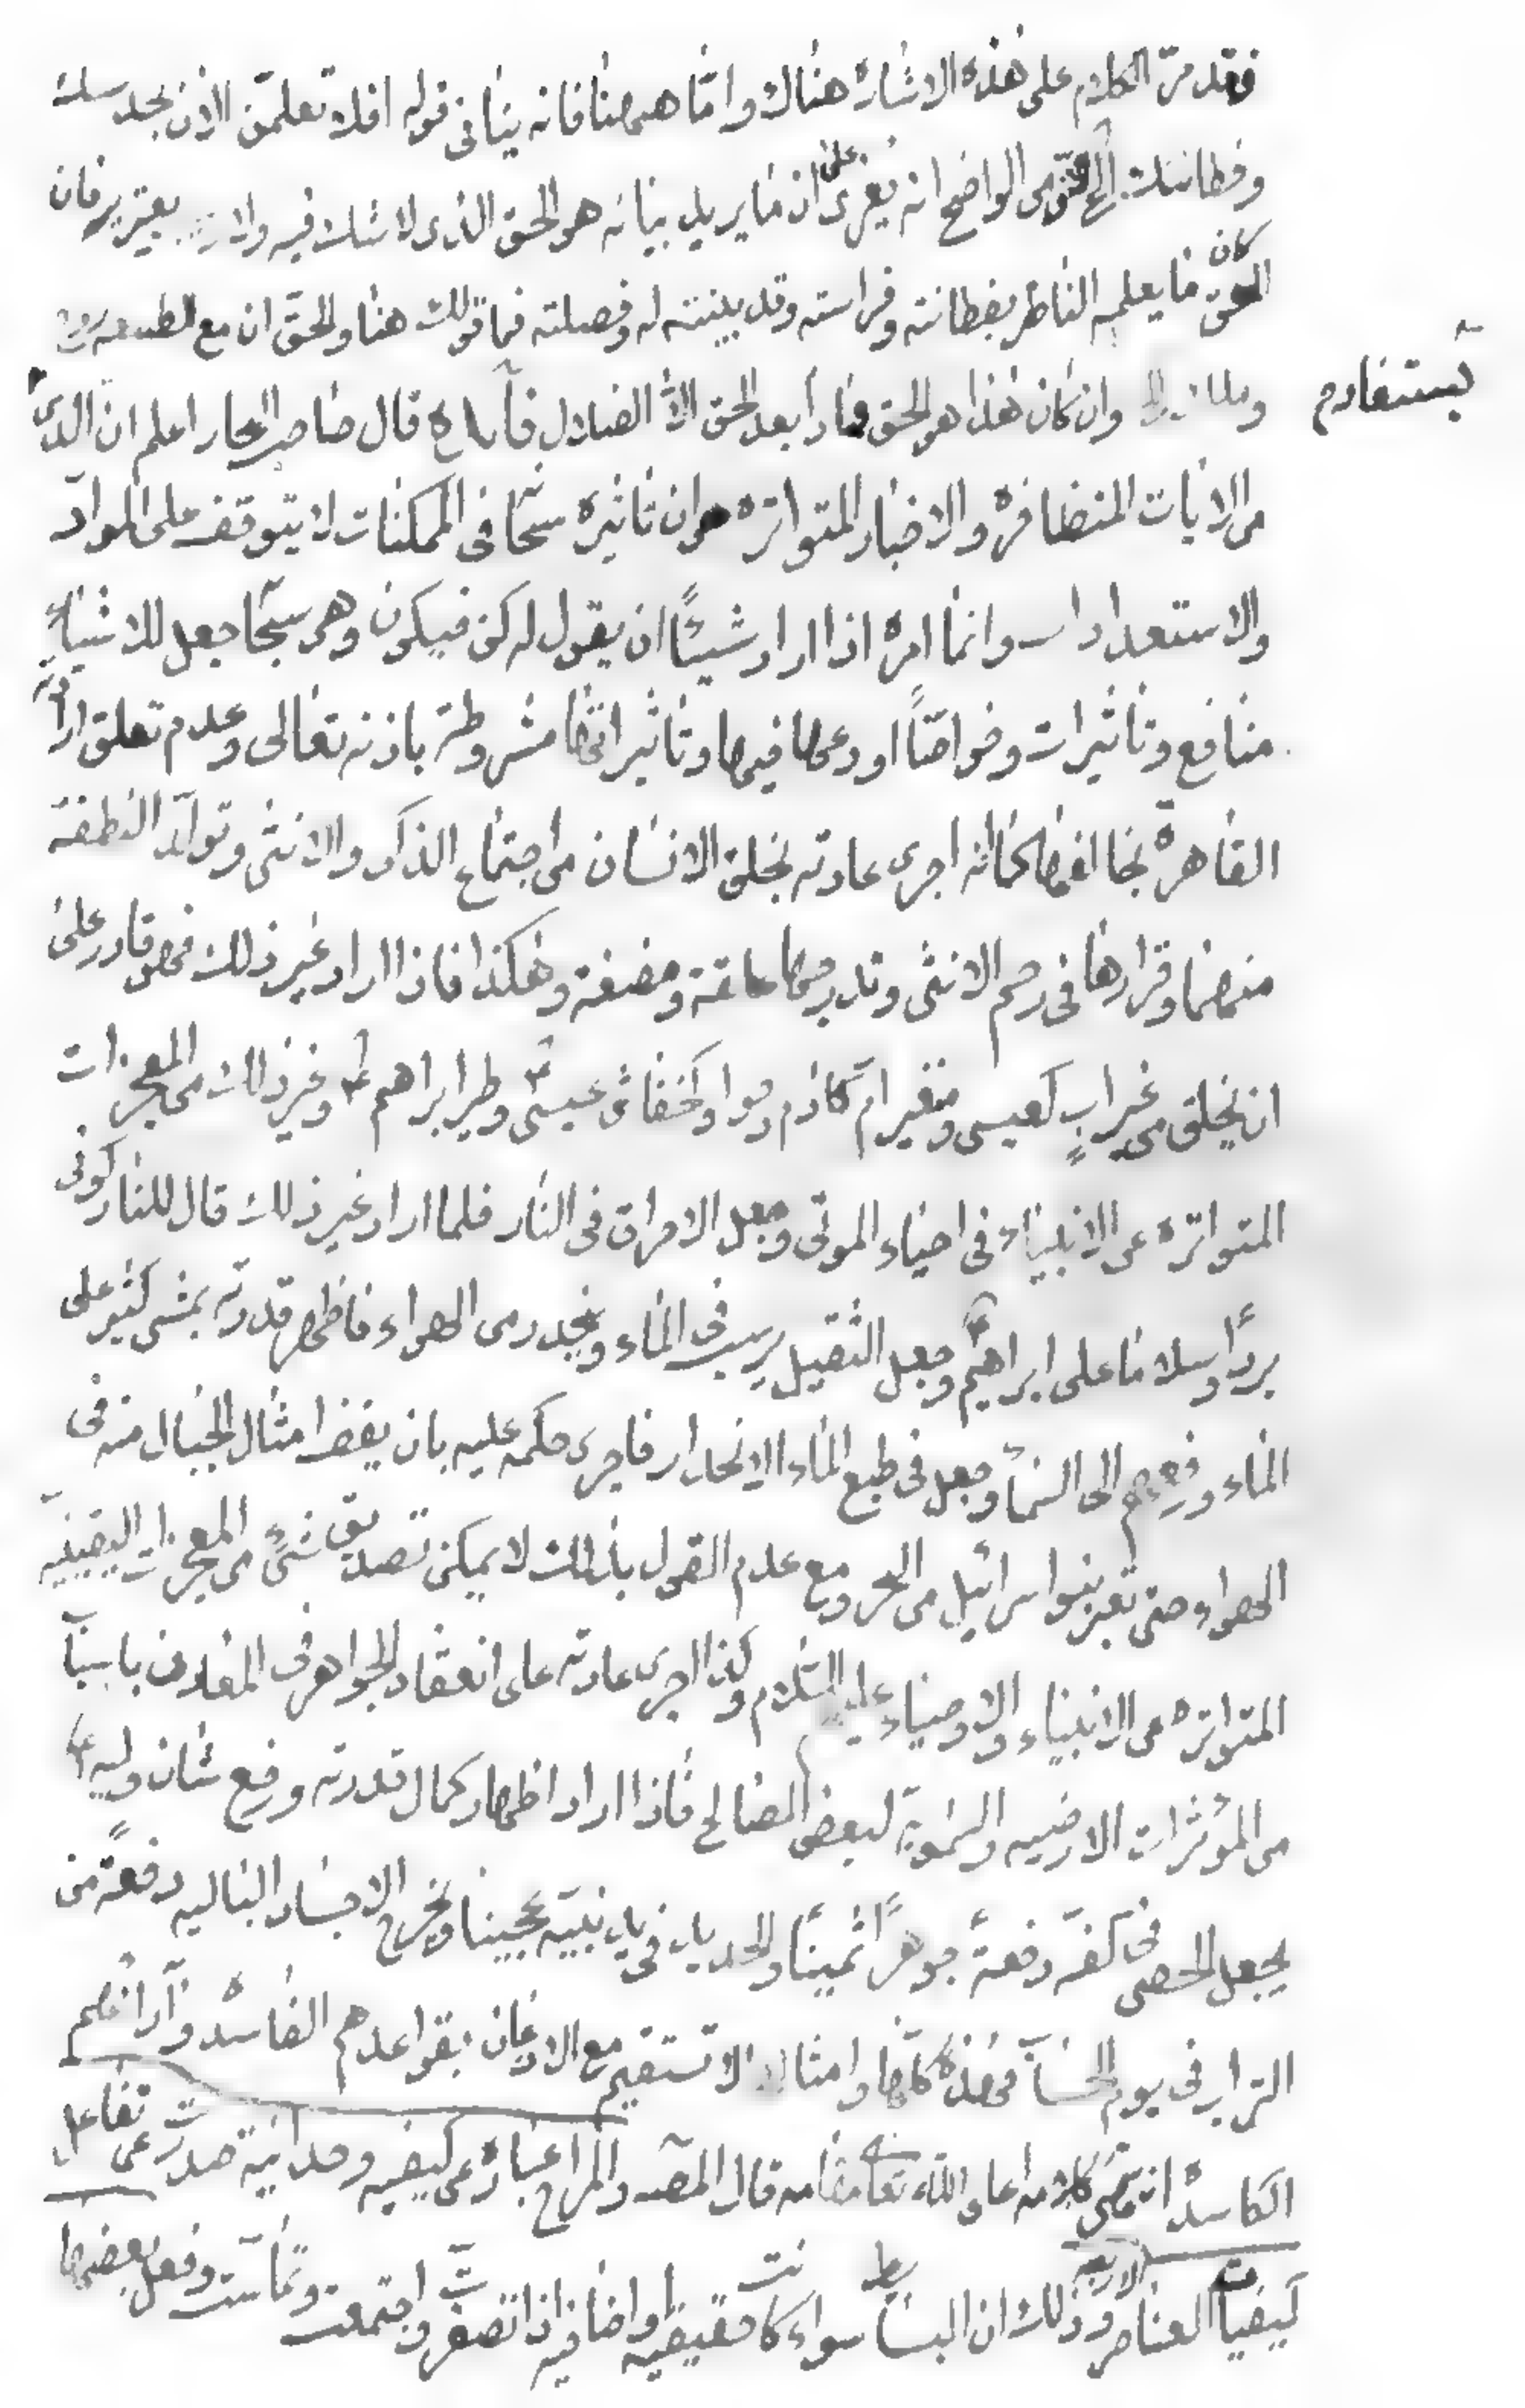 فقد مرّ الكلام على هذه الاشارة هناك وامّا ههنا فانه ينافى قوله افلا تعلمنّ الان بحدسك
وفطانتك الواضح انه يعزى على ان ما يريد بيانه هو الحق الذى لا شك فيه ولا يعتريه فان
كان الحق ما يعلمه الناظر بفطانته وفراسته وقد بينته له وفصلته فما قولك هنا والحقّ ان مع
وان كان هذا هو الحق فماذا بعد الحق الاّ الضلال قال صاحب البحار اعلم ان الذى
يستفاد
من الايات المتظافرة والاخبار المتواترة هو ان تاثيره سبحانه فى الممكنات لا يتوقف على الموادّ
والاستعدادات وانما امره اذا اراد شيئًا ان يقول له كن فيكون وهو سبحانه جعل للاشياء
منافع وتاثيرات وخواصّاً اودعها فيها وتاثيراتها مشروطة باذنه تعالى وعدم تعلق ارادته
القاهرة بخلافها كما انّه اجرى عادته بخلق الانسان من اجتماع الذكر والانثى وتولّد النطفة
منهما وقرارها فى رحم الانثى وتدرجها علقة ومضغة وهكذا فاذا اراد غير ذلك فهو قادر على
ان يخلق من غير ابٍ كعيسى ومن غير ام كآدم وحوا وكخفاش عيسىٰ وطير ابراهيم ع وغير ذلك من المعجزات
المتواترة عن الانبياء فى احياء الموتى وجعل الاحراق فى النار فلما اراد غير ذلك قال للنار كونى
بردًا وسلاما على ابراهيم ع وجعل الثقيل يرسب فى الماء وينحدر من الهواء فاظهر قدرته بمشى كثير على
الماء ورفعهم الى السماء وجعل فى طبع الماء الانحدار فاجرى حكمه عليه بان يقف امثال الجبال منه فى
الهواء حتى تعبر بنوا سرائيل من البحر ومع عدم القول بذلك لا يمكن تصديق شئٍ من المعجزات اليقينيّه
المتواتره عن الانبياء والاوصياء عليهم السّلام وكذا اجرى عادته على انعقاد الجواهر فى المعادن باسباب
من المؤثرات الارضيه والسماويّة لبعض المصالح فاذا اراد اظهار كمال قدرته ورفع شان وليه ع
يجعل الحصى فى كفه دفعةً جوهرًا ثمينًا والحديد فى يد نبيّه عجينا ويخرج الاجساد الباليه دفعةً من
التراب فى يوم الحساب فهذه كلّها وامثالها لا تستقيم مع الاذعان بقواعدهم الفاسدة وآرائهم
الكاسدة انتهى كلامه اعلى اللّه تعا مقامه قال المصـ والمزاج عبارة عن كيفيه وحدانية حدث عن تفاعل
كيفيات العناصر الاربعه وذلك ان البسايط سواء كانت حقيقيه او اضافيه اذا تصغرت واجتمعت وتماسّت وفعل بعضها